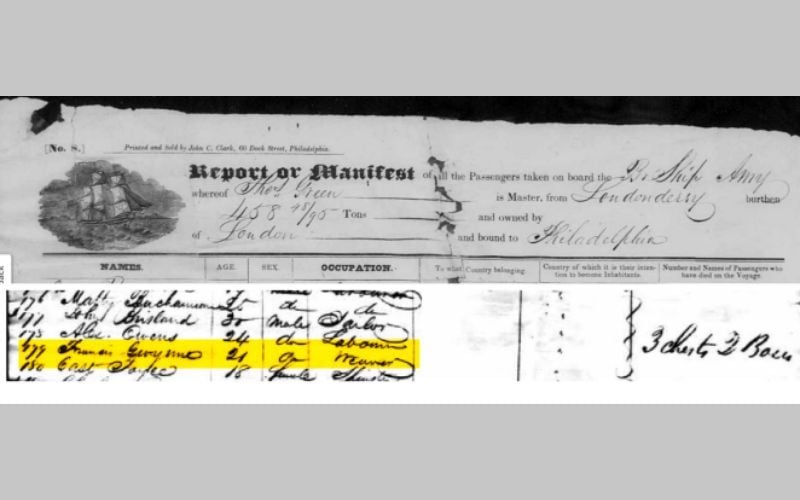 [No. 8.] Printed and sold by John C. Clark, 60 Dock Street, Philadelphia.
Report or Manifest of all the Passengers taken on board the Br Ship Amy
whereof Thos Green is Master, from Londonderry burthen
458 48/95 Tons and owned by
of London and bound to Philadelphia
NAMES. AGE. SEX. OCCUPATION. To what Country belonging. Country of which it is their intention to become Inhabitants. Number and Names of Passengers who have died on the Voyage.
176 do do
John 30 male Tailor
Alex. Owens 24 do Labourer
179 Francis Gwynne 21 do Weaver
180 18 female
3 Chests